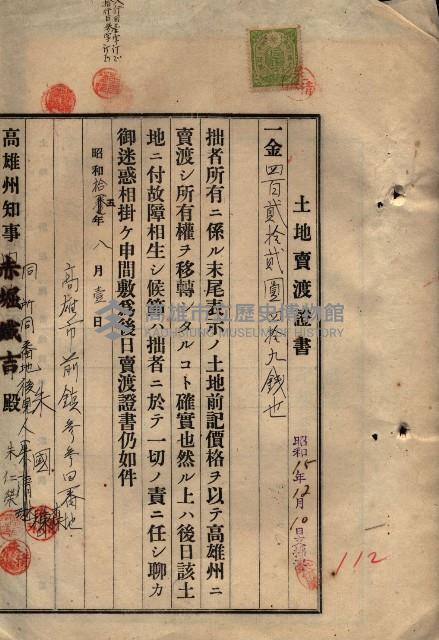 土地賣渡證書
一金四百貳拾貳圓五拾九錢也
拙者所有ニ係ル末尾表示ノ土地前記價格ヲ以テ高雄州ニ
賣渡シ所有權ヲ移轉シタルコト確實也然ル上ハ後日該土
地ニ付故障相生シ候節ハ拙者ニ於テ一切ノ責ニ任シ聊カ
御迷惑相掛ケ申間敷爲後日賣渡證書仍如件
昭和拾五年八月壹日
高雄市前鎮參參四番地
朱國
同所同番地後見人
朱仁榮
高雄州知事赤堀鐵吉殿
昭和15年12月10日
112
高雄市立歷史博物館
KAOHSIUNG MUSEUM OF HISTORY